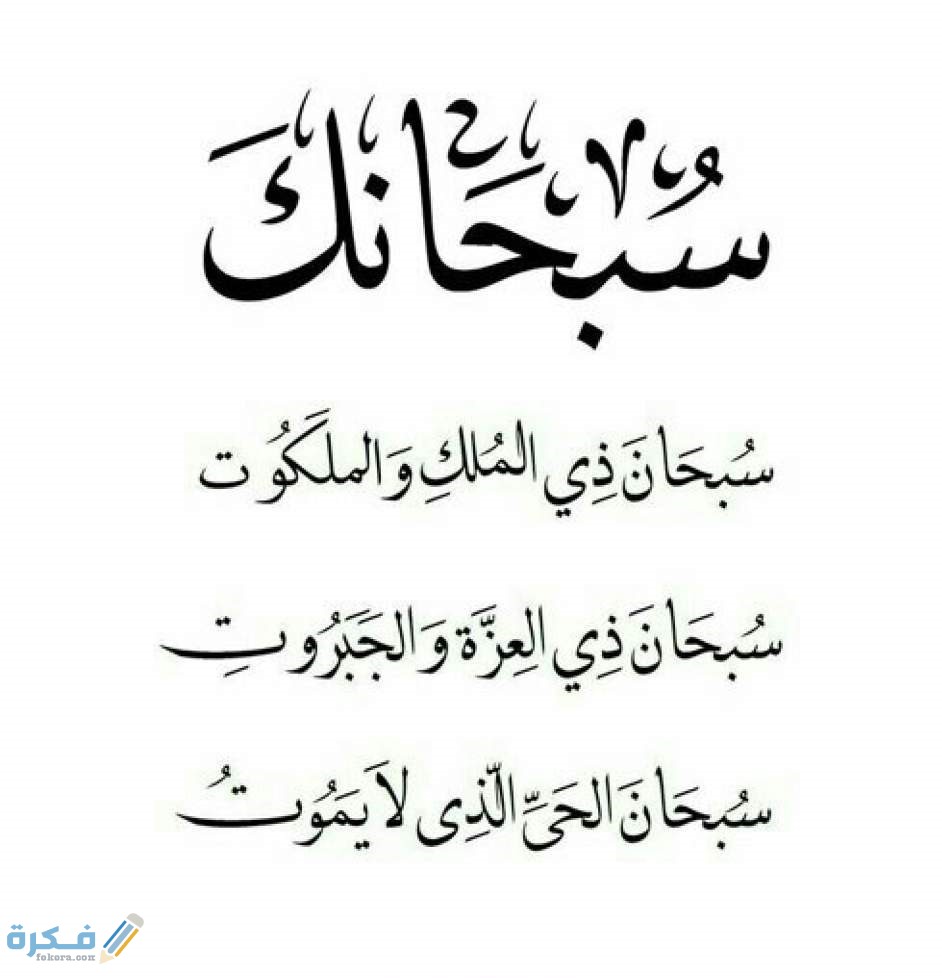 سُبحَانكَ
سُبحَانَ ذِي المُلكِ وَالملَكُوت
سُبحَانَ ذِي العِزَّة وَالجَبَرُوتِ
سُبحَانَ الحَىِّ الّذِى لاَ يَمَوُتُ
فكرة
fekera.com